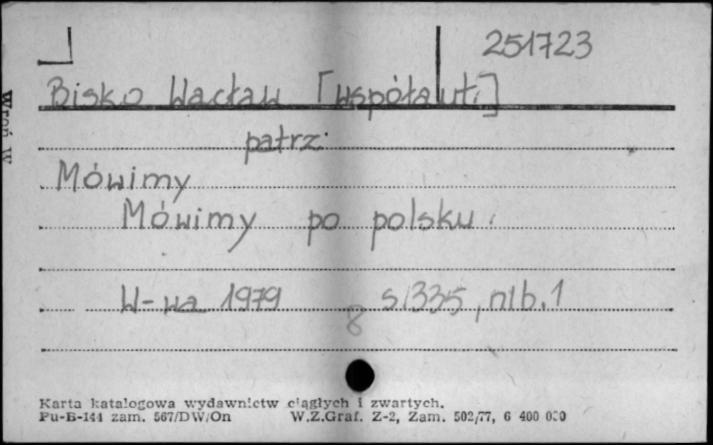 251723
Bisko Wacław [współaut.]
patrz:
Mówimy
Mówimy po polsku.
W-wa 1979 s.335, nlb.1
8
Karta katalogowa wydawnictw ciągłych i zwartych.
Pu-B-144 zam. 567/DW/On W.Z.Graf. Z-2, Zam. 502/77, 6 400 000